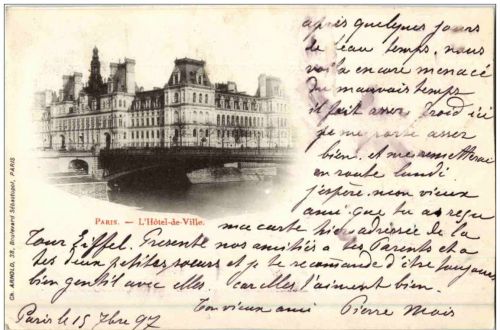 après quelques jours
de beau temps, nous
voila encore menacé
du mauvais temps
il fait assez froid ici
je me porte assez
bien. et me remetterai
en route lundi
j'espère mon vieux
ami que tu as reçu
ma carte hier adressée de la
Tour Eiffel. Presente nos amitiés a tes Parents et a
tes deux petites soeurs et je te recommande d'être toujours
bien gentil avec elles, car elles t'aiment bien.
Ton vieux ami Pierre
Paris le 15 7bre 97
PARIS. — L'Hôtel-de-Ville.
Ch. ARNOLD, 38, Boulevard Sébastopol, PARIS